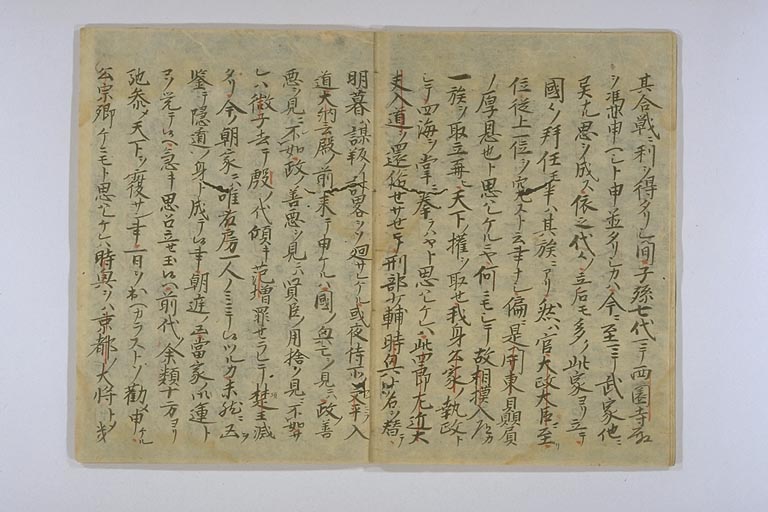 其合戦ニ利ヲ得タリシ間子孫七代ニテ西園寺殿
ヲ憑申ヘシト申並タリシカハ今ニ至ニテ武家他ニ
異ナル思ヲ成ス依之代々ノ立后モ多ハ此家ヨリ立テ
國々ノ拝任モ半ハ其族ニアリ然ハ官太政大臣ニ至リ
位従上一位ヲ究スト云事ナシ偏ニ是関東贔屓
ノ厚恩也ト思ハレケルニヤ何ニモシテ故相摸入道カ
一族ヲ取立再ヒ天下ノ權ヲ取セ我身公家ノ執政ト
シテ四海ヲ掌ニ拳ラハヤト思ハレケレハ此四郎左近大
夫入道ヲ還俗セサセテ刑部少輔時興ト名ヲ替テ
明暮ハ謀叛ノ計畧ヲソ廻サレケル或夜侍所ノ入
道大納言殿ノ前ニ来テ申ケルハ國ノ興亡ヲ見ニハ政ノ善
悪ヲ見ニ不如政ノ善悪ヲ見ニハ賢臣ノ用捨ヲ見ニ不如サ
レハ微子去テ殷ノ代傾キ范増罪セラレテ楚王滅
タリ今朝家ニ唯藤房一人ノミニテ候ツルカ未然ニ凶ヲ
鑒テ隠遁ノ身ト成テ候事朝廷ノ凶當家ノ御運ト
コソ覚テ候ヘ急キ思召立セ玉ハヽ前代ノ余類十方ヨリ
馳参メ天下ヲ覆サン事一日ヲ出ヘカラストソ勸メ申ケル
公宗卿ケニモト思ハレケレハ時興ヲハ京都ノ大将トメ畿